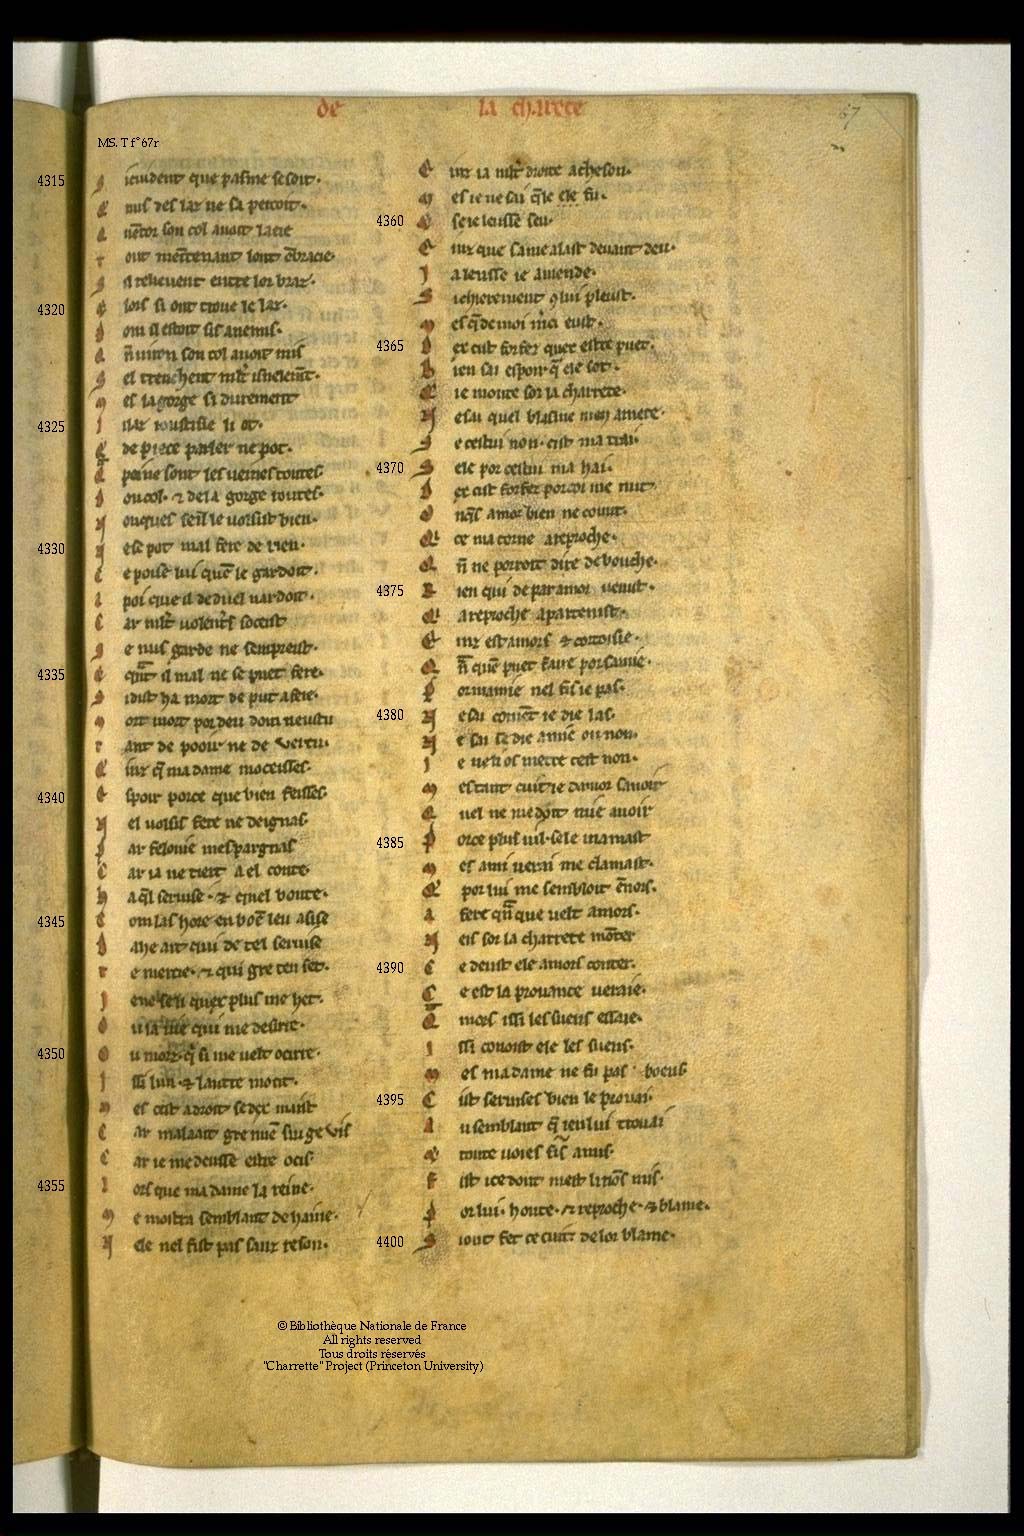 de la charete
67
MS. T fº 67r
4315 s icuident que pasme se soit.
E nus des laz ne sa percoit.
q
t out
s il relieuent entre lor braz.
4320 e lors si ont troue le laz.
d om il estoit sis anemis.
q son col auoit mis
s el trenchent
m es la gorge si durement
4325 l i laz iousticie li ot.
q de piece parler ne pot.
q peine sont les ueines toutes
d ou col. ⁊ de la gorge toutes.
N onques seil le uousist bien.
4330 N ese pot mal fere de rien.
c e poise lui le gardoit.
a poi que il de duel nardoit.
C ar
s e nus garde ne sempreist.
4335 e il mal ne se puet fere.
s i dist ha mort de put afere.
m ort mort por deu dont neustu
t ant de pooir ne de vertu.
Q inz ma dame moceisses.
4340 e spoir porce que bien feisses
N el uousis fere ne deignas.
p ar felonie mespargnas
C ar ia ne tiert a el conte.
h a seruise. ⁊ quel bonte.
4345 C om las hore en leu asise
d ahe ait qui de tel seruise
t e mercie. ⁊ qui gre ten set.
J ene sai quex plus me het.
O u la uie qui me desirre.
4350 O u morz. si me uelt ocirre.
J ssi lun. ⁊ lautre mocit.
m es cest adroit se dex mait
C ar malgre mien sui ge vis
C ar ie me deusse estre ocis.
4355 l ors que ma dame la reine.
m e mostra semblant de haine.
N ele nel fist pas sanz reson.
E inz ia droite acheson.
m es ie ne sai ele fu.
4360 Q se ie leusse seu.
E inz que same alast deuant deu.
J aleusse ie amende.
s i chierement lui pleust.
m es de moi eust.
4365 d ex cist forfez quex estre puet.
b ien sai espoir ele sot.
Q ie montai sor la charrete.
N esai quel blasme men amete.
s e cestui non. cist ma trai.
4370 s ele por cestui ma hai.
d ex cist forfez porcoi me nuit
O amor bien ne conut.
Q ce ma torne a reproche.
Q ne porroit dire de bouche.
4375 R ien qui de par amor uenist.
Q a reproche apartenist.
E inz est amors ⁊ cortoisie.
Q puet faire por samie.
p or mamie nel fis ie pas.
4380 N esai ie die las.
N e sai se die amie ou non.
J e ne li os metre cest non.
m es tant cuit ie damor sauoir
Q uel ne me mie auoir
4385 p orce plus uil. sele mamast
m es ami uerai me clamast.
Q por lui me sembloit
a fere que uelt amors.
N eis sor la charrete
4390 C e deust ele amors conter.
C e est la prouance ueraie.
Q mors issi les suens essaie.
i ssi conoist ele les suens.
m es ma dame ne fu pas boens
4395 C ist seruises bien le prouai.
a u semblant ien lui trouai
Q toute uoies amis.
F ist ice dont mis.
p or lui. honte. ⁊ reproche. ⁊ blame.
4400 s i out fet ce cuit de lor blame.
© Bibliothèque Nationale de France
All rights reserved
Tous droits réservés
"Charrette" Project (Princeton University)